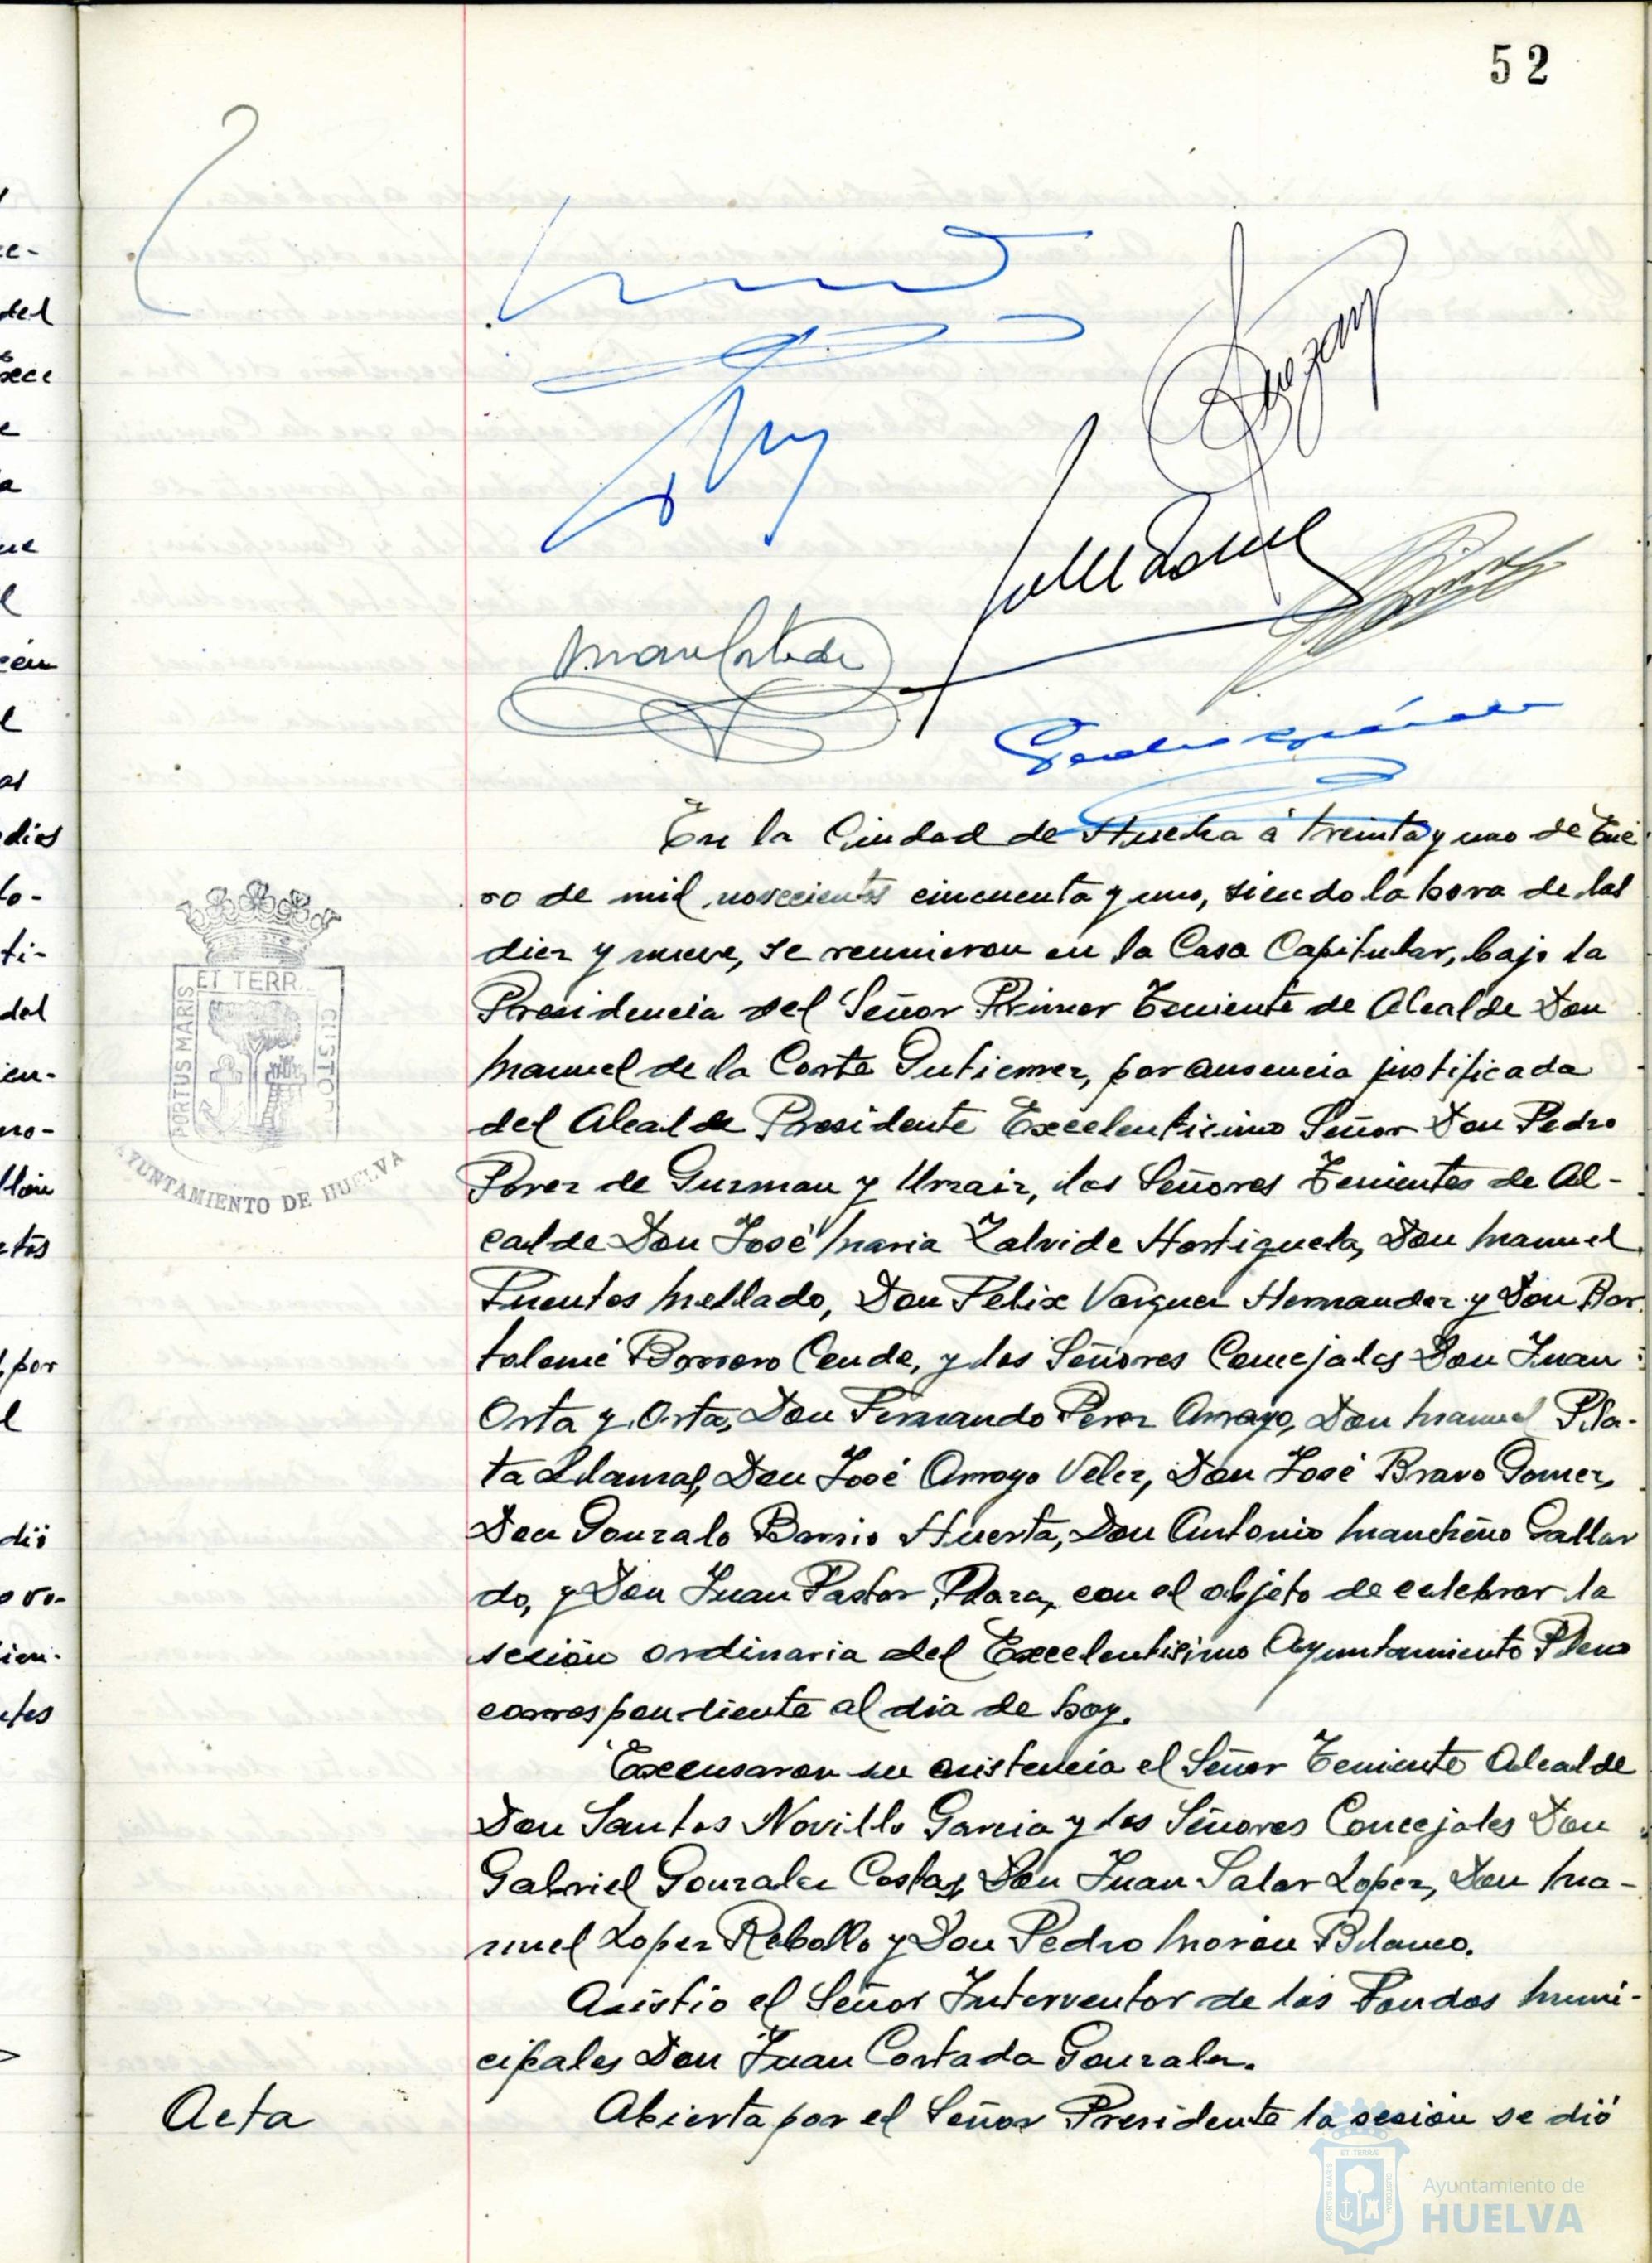 52
En la Ciudad de Huelva á treinta y uno de Ene
ro de mil novecientos cincuenta y uno, siendo la hora de las
diez y nueve, se reunieron en la Casa Capitular, bajo la
Presidencia del Señor Primer Teniente de Alcalde Don
Manuel de la Corte Gutierrez, por ausencia justificada
del Alcalde Presidente Excelentisimo Señor Don Pedro
Perez de Guzman y Urzaiz, los Señores Tenientes de Al-
calde Don José Maria Zalvide Hortiguela, Don Manuel
Fuentes Mellado, Don Felix Vazquez Hernandez y Don Bar
tolomé Borrero Conde, y los Señores Concejales Don Juan
Orta y Orta, Don Fernando Perez Arroyo, Don Manuel Pla-
ta Llamas, Don José Arroyo Velez, Don José Bravo Gomez,
Don Gonzalo Barrio Huerta, Don Antonio Mancheño Gallar
do, y Don Juan Pastor Plaza, con el objeto de celebrar la
sesión ordinaria del Excelentisimo Ayuntamiento Pleno
correspondiente al dia de hoy.
Excusaron su asistencia el Señor Teniente Alcalde
Don Santos Novillo Garcia y los Señores Concejales Don
Gabriel Gonzalez Costas, Don Juan Salar Lopez, Don Ma-
nuel Lopez Rebollo y Don Pedro Morón Blanco.
Asistio el Señor Interventor de los Fondos Muni-
cipales Don Juan Cortada Gonzalez.
Acta
Abierta por el Señor Presidente la sesión se dió
PORTUS MARIS
ET TERR
AYUNTAMIENTO DE HUELVA
Ayuntamiento de
HUELVA